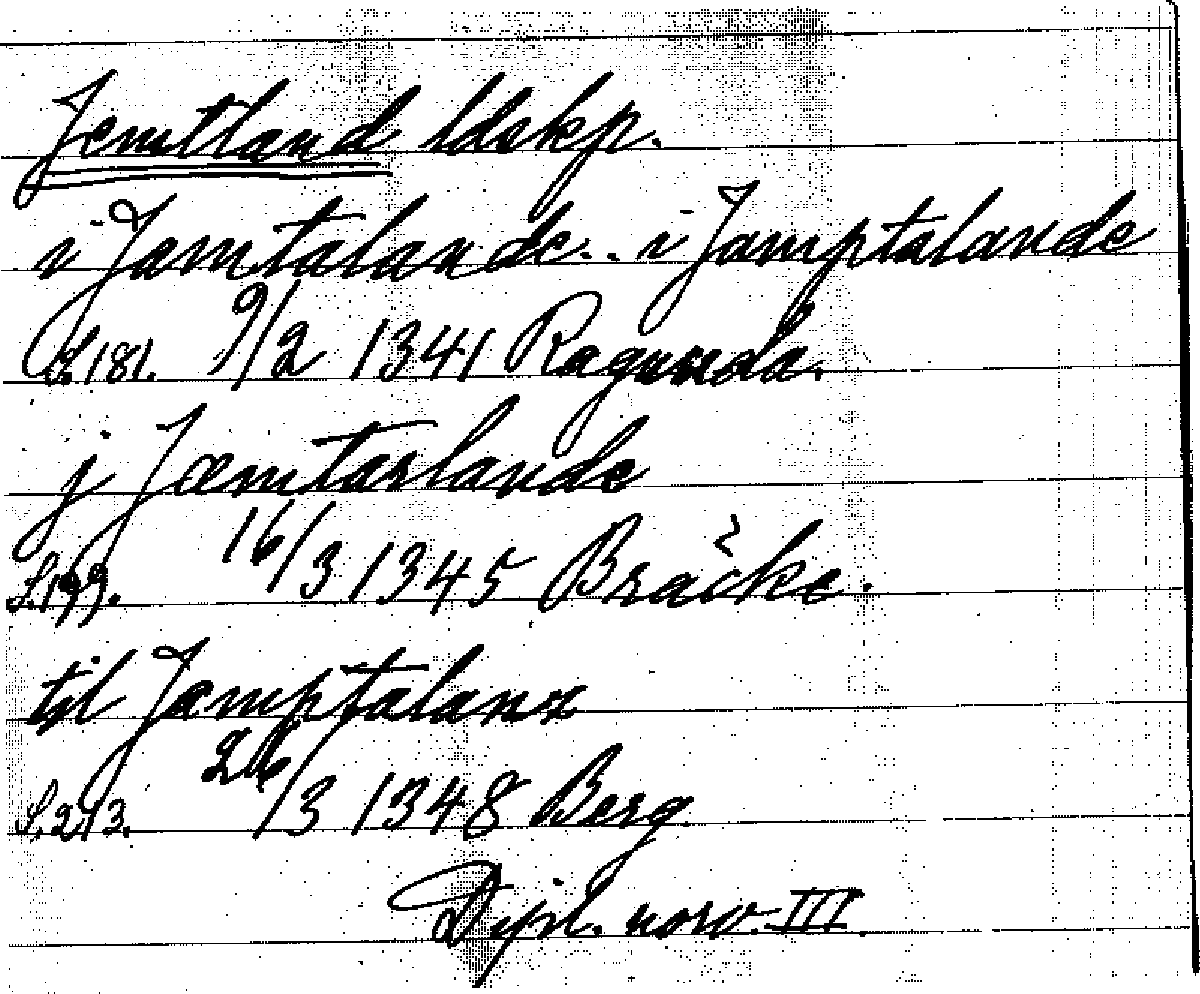 Jemtland ldskp.
i Jamtalande.. i Jamptalande
S.181. 9/2 1341 Ragunda.
j Jæmtarlande
S.199. 16/3 1345 Bräcke.
til Jæmptalanz
S.213. 26/3 1348 Berg
Dipl. norv. III.